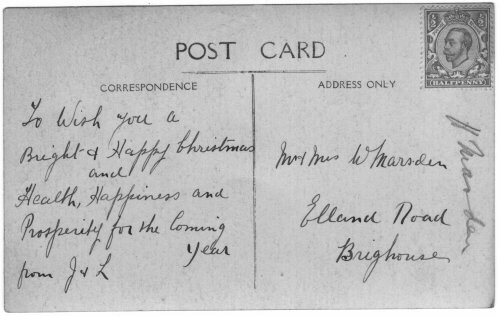 POST CARD
CORRESPONDENCE
To Wish You a
Bright & Happy Christmas
and
Health, Happiness and
Prosperity for the Coming
Year
from J & L
ADDRESS ONLY
HALFPENNY
Mr & Mrs W Marsden
Elland Road
Brighouse
H Marsden